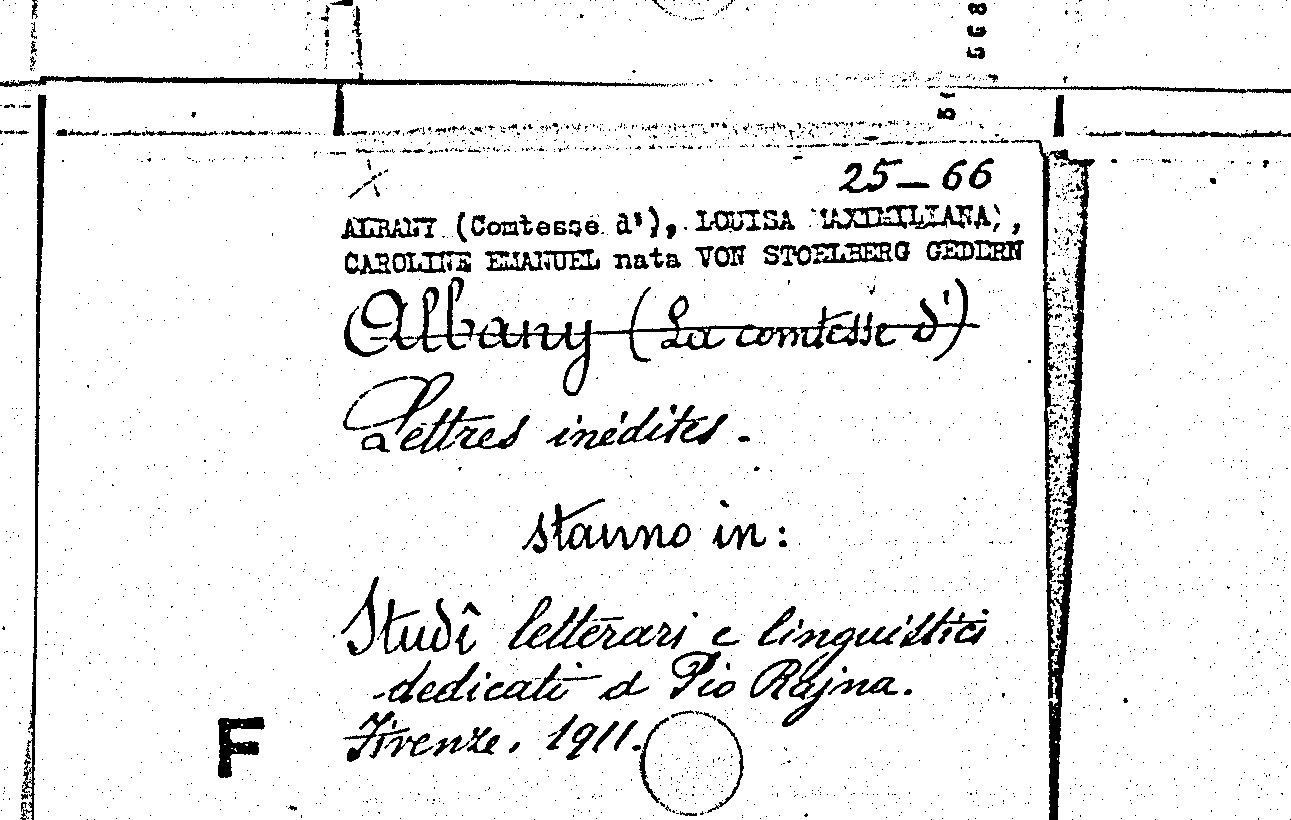 25-66
ALBANY (Comtesse d'), LOUISA MAXIMILIANA,
CAROLINE EMANUEL nata VON STOELBERG GEDERN
Albany (La comtesse d')
Lettres inédites.
stanno in:
Studî letterari e linguistici
dedicati a Pio Rajna.
Firenze. 1911.
F